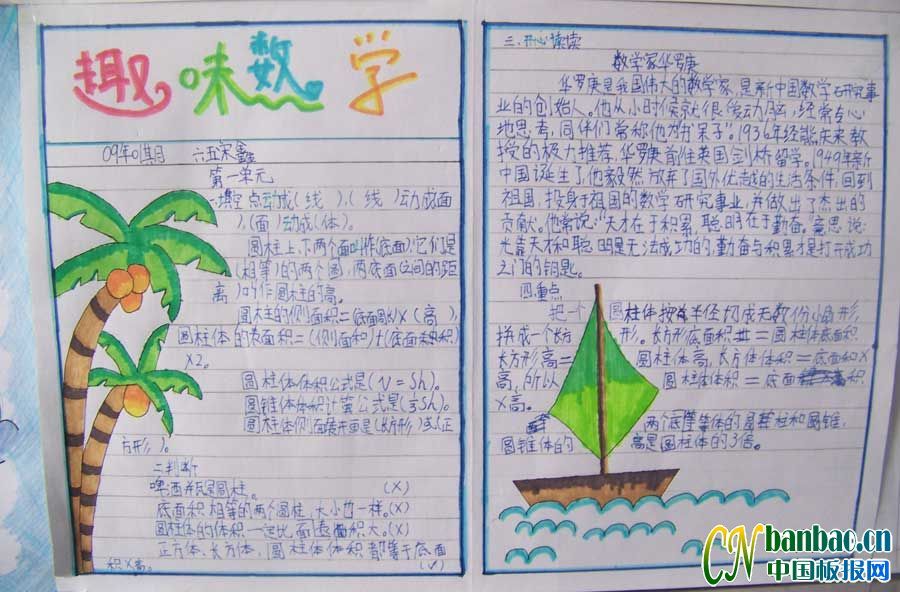 趣味数学
09年01期 六五宋鑫
第一单元
一.填空 点动成(线),(线)动成面
),(面)动成(体)。
圆柱上、下两个面叫作(底面),它们是
(相等)的两个圆,两底面之间的距
离)叫作圆柱的高。
圆柱的侧面积=底面周长)×(高),
圆柱体的表面积=(侧面积)+(底面积)
×2。
圆柱体体积公式是(V=Sh)。
圆锥体体积计算公式是(1/3Sh)。
圆柱体侧面展开面是(长方形)或(正
方形)。
二.判断
啤酒瓶是圆柱。(×)
底面积相等的两个圆柱,大小也一样。(×)
圆柱体的体积一定比表面积大。(×)
正方体、长方体、圆柱体体积都等于底面
积×高。(√)
三.开心读读
数学家华罗庚
华罗庚是我国伟大的数学家,是新中国数学研究事
业的创始人。他从小时侯就很爱动脑,经常专心
地思考,同伴们常称他为"呆子"。1936年经熊庆来教
授的极力推荐,华罗庚前往英国剑桥留学。1949年新
中国诞生了,他毅然放弃了国外优越的生活条件,回到
祖国,投身于祖国的数学研究事业,并做出了杰出的
贡献。他常说:"天才在于积累,聪明在于勤奋。"意思说:
光靠天才和聪明是无法成功的,勤奋与积累才是打开成功
之门的钥匙。
四.重点
把一个圆柱体按半径切成无数份小扇形,
拼成一个长方形。长方形底面积=圆柱体底面积,
长方形高=圆柱体高,长方体体积=底面积×
高,所以圆柱体积=底面积
×高。
两个底等体的圆柱和圆锥,
圆锥体的高是圆柱体的3倍。
CN banbao.cn
中国板报网